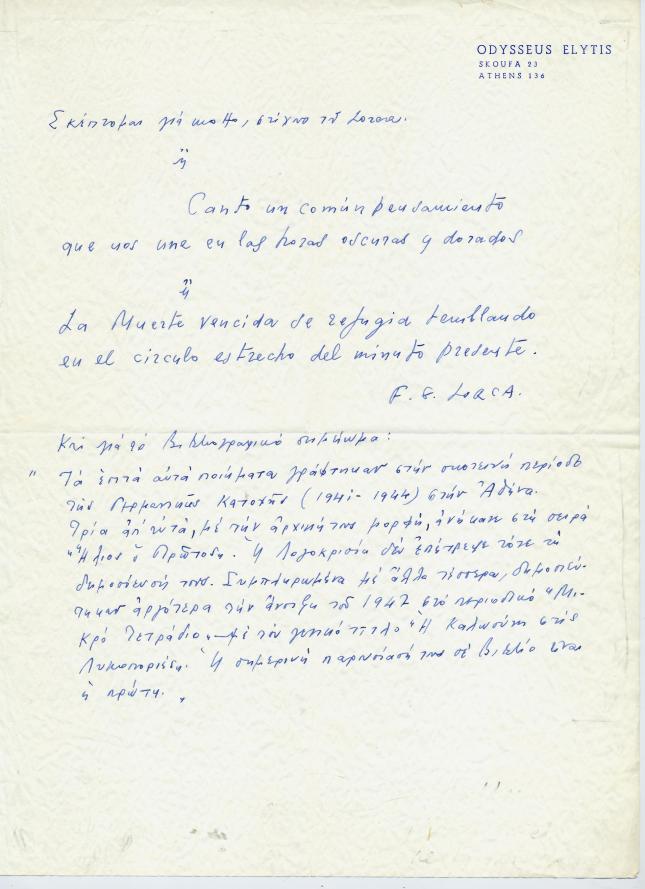 ODYSSEUS ELYTIS
SKOUFA 23
ATHENS 136
Σκέπτομαι γιά μόττο, στίχο τοῦ Lorca.
ἤ
Canto un común pensamiento
que nos une en las horas oscuras y dorados
ἤ
La Muerte vencida se refugia temblando
en el círculo estrecho del minuto presente.
F. G. LORCA.
Καί γιά τό βιβλιογραφικό σημείωμα:
" Τά ἑπτά αὐτά ποιήματα γράφτηκαν στήν σκοτεινή περίοδο
τῆς Γερμανικῆς Κατοχῆς (1941-1944) στήν Ἀθήνα.
Τρία ἀπ' αὐτά, μέ τήν ἀρχική τους μορφή, ἀνήκαν στή σειρά
"Ἥλιος ὁ Πρῶτος". Ἡ Λογοκρισία δέν ἐπέτρεψε τότε τή
δημοσίευσή τους. Συμπληρωμένα μέ ἄλλα τέσσερα, δημοσιεύ-
τηκαν ἀργότερα τήν ἄνοιξη τοῦ 1947 στό περιοδικό "Μι-
κρό Τετράδιο" μέ τόν γενικό τίτλο "Ἡ Καλωσύνη στίς
Λυκοποριές". Ἡ σημερινή παρουσίασή τους σέ βιβλίο εἶναι
ἡ πρώτη. "